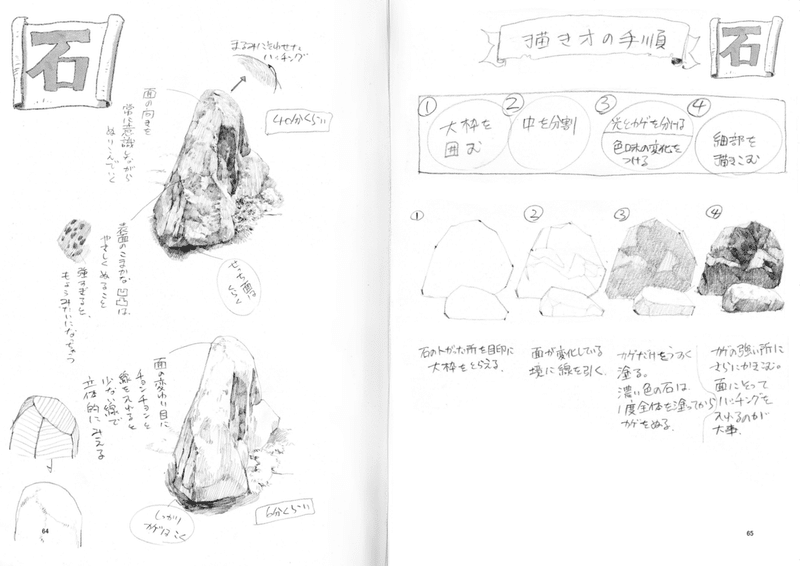 石
まるみにそわせた
ハッチング
40分くらい
面の向きを
常に意識しながら
ぬりこんでいく
表面のこまかな凹凸は、
やさしくぬること
強すぎると、
もようみたいになっちゃう
せっち面は
くらく
面の変わり目に
チョンチョンと
線を入れると
少ない線で
立体的にみえる
6分くらい
しっかり
カゲはこく
64
描き方の手順
石
① 大枠を
囲む
② 中を分割
③ 光とカゲを分ける
色味の変化を
つける
④ 細部を
描きこむ
①
②
③
④
石のトガった所を目印に
大枠をとらえる。
面が変化している
境に線を引く。
カゲだけをうすく
塗る。
濃い色の石は、
1度全体を塗ってから
カゲをぬる。
カゲの強い所に
さらにかきこむ。
面にそって
ハッチングを
入れるのが
大事。
65